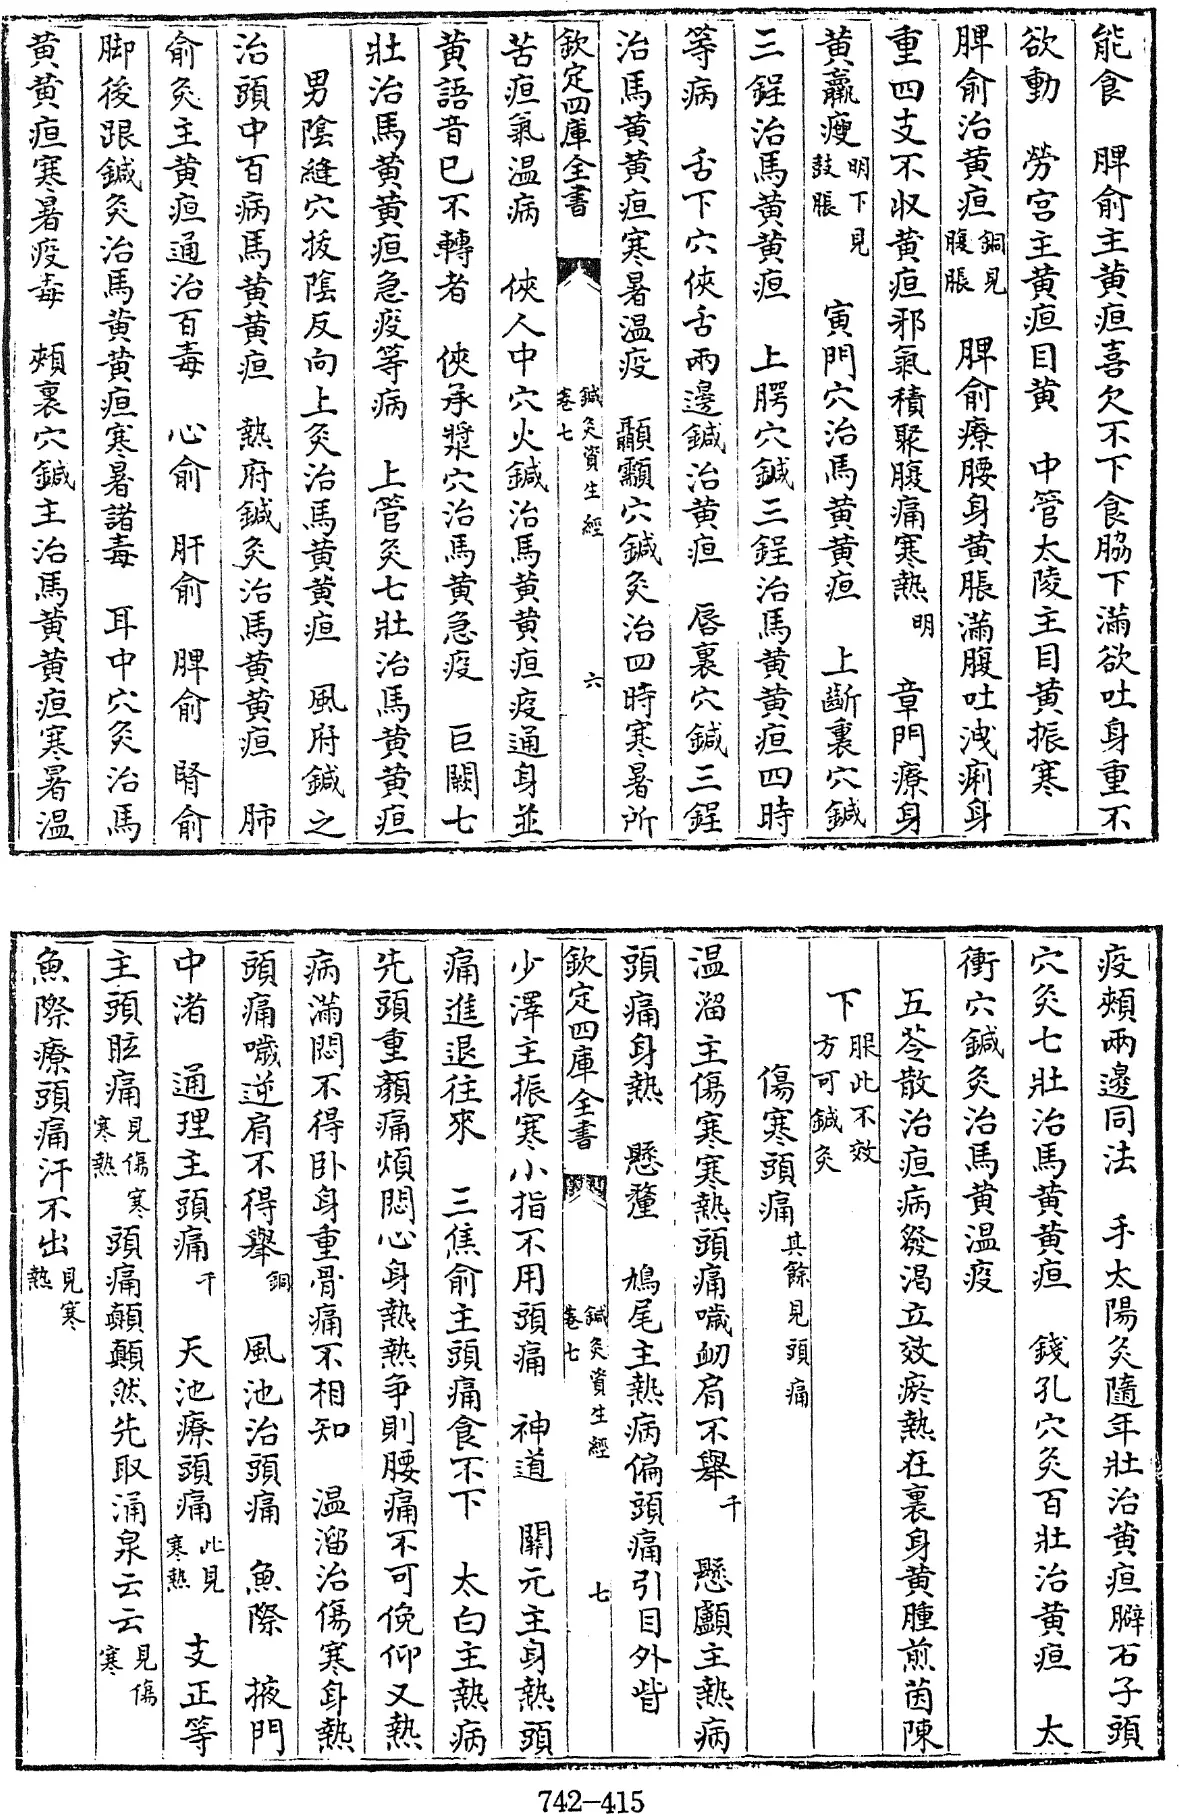 能食　脾俞主黄疸喜欠不下食脇下滿欲吐身重不
欲動　勞宫主黄疸目黄　中管太陵主目黄振寒
脾俞治黄疸銅見腹脹　脾俞療腰身黄脹滿腹吐洩痢身
重四支不收黄疸邪氣積聚腹痛寒熱明　章門療身
黄羸瘦明下見鼓脹　寅門穴治馬黄黄疸　上齗裏穴鍼
三鋥治馬黄黄疸　上腭穴鍼三鋥治馬黄黄疸四時
等病　舌下穴俠舌兩邊鍼治黄疸　唇裏穴鍼三鋥
治馬黄黄疸寒暑温疫　顬顬穴鍼灸治四時寒暑所
欽定四庫全書　鍼灸資生經卷七　六
苦疸氣温病　俠人中穴火鍼治馬黄黄疸疫通身並
黄語音已不轉者　俠承漿穴治馬黄急疫　巨闕七
壯治馬黄黄疸急疫等病　上管灸七壯治馬黄黄疸
男陰縫穴拔陰反向上灸治馬黄黄疸　風府鍼之
治頭中百病馬黄黄疸　熱府鍼灸治馬黄黄疸　肺
俞灸主黄疸通治百毒　心俞　肝俞　脾俞　腎俞
脚後跟鍼灸治馬黄黄疸寒暑諸毒　耳中穴灸治馬
黄黄疸寒暑疫毒　頰裏穴鍼主治馬黄黄疸寒暑温
疫頰兩邊同法　手太陽灸隨年壯治黄疸臂石子頭
穴灸七壯治馬黄黄疸　錢孔穴灸百壯治黄疸　太
衝穴鍼灸治馬黄温疫
五苓散治疸病發渴立效瘀熱在裏身黄腫煎茵陳
下服此不效方可鍼灸
傷寒頭痛其餘見頭痛
温溜主傷寒寒熱頭痛噦衂肩不舉千　懸顱主熱病
頭痛身熱　懸釐　鳩尾主熱病偏頭痛引目外眥
欽定四庫全書　鍼灸資生經卷七　七
少澤主振寒小指不用頭痛　神道　關元主身熱頭
痛進退往來　三焦俞主頭痛食不下　太白主熱病
先頭重顔痛煩悶心身熱熱争則腰痛不可俛仰又熱
病滿悶不得卧身重骨痛不相知　温溜治傷寒身熱
頭痛噦逆肩不得舉銅　風池治頭痛　魚際　掖門
中渚　通理主頭痛千　天池療頭痛此見寒熱　支正等
主頭眩痛見傷寒寒熱　頭痛顛顛然先取涌泉云云見傷寒
魚際療頭痛汗不出見寒熱
742–415